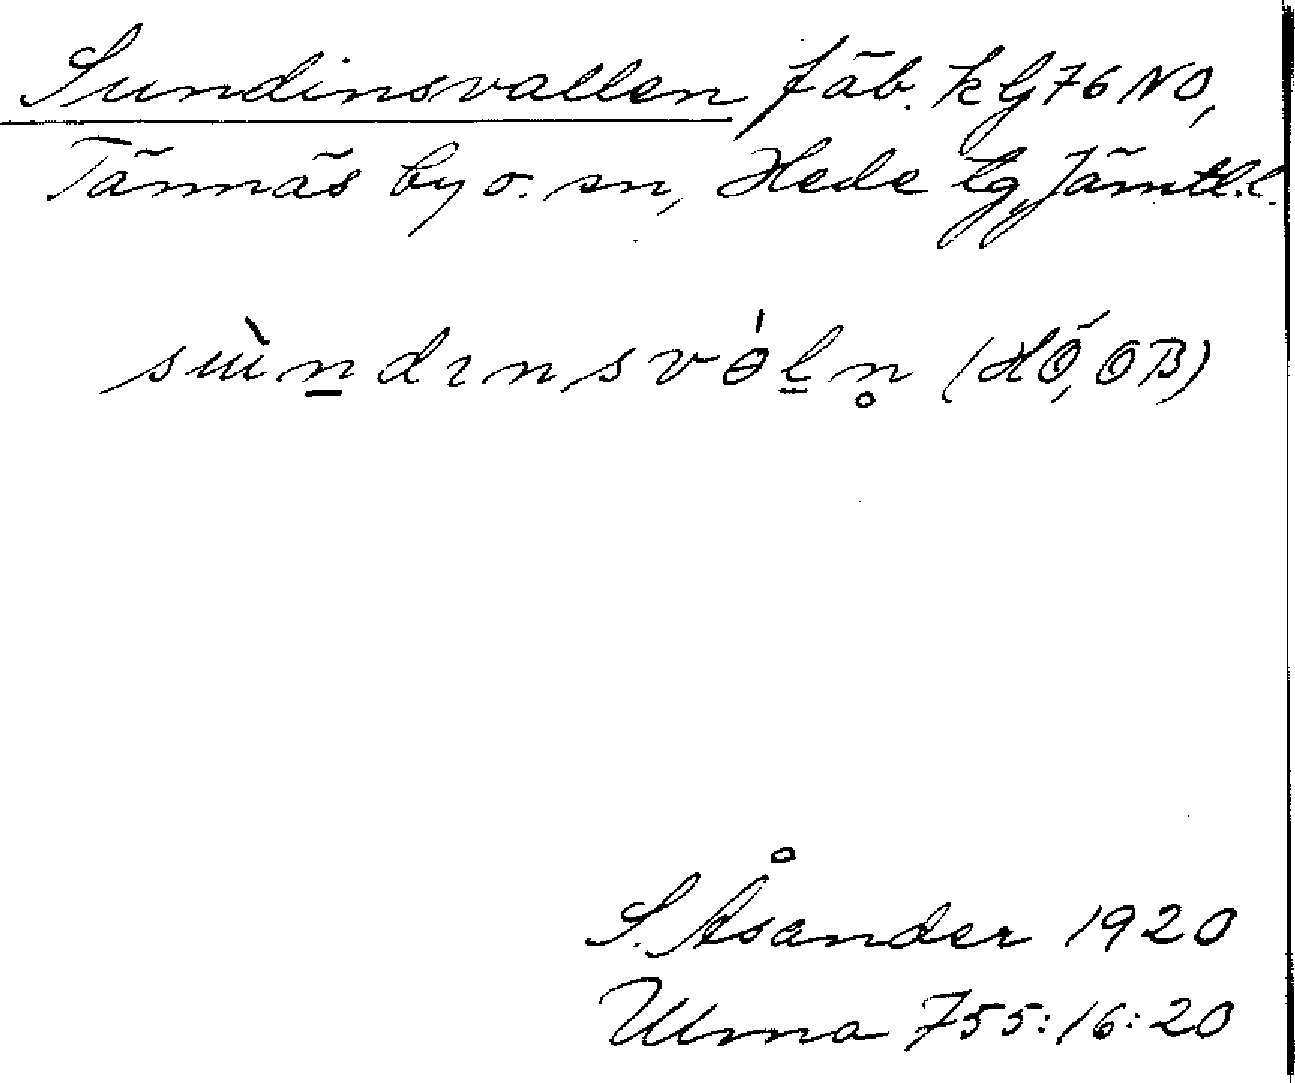 Sundinsvallen fäb. kG76NO,
Tännäs by o. sn, Hede tg, Jämtl.l.
(HÖ, OB)
S. Åsander 1920
Ulma 755:16:20